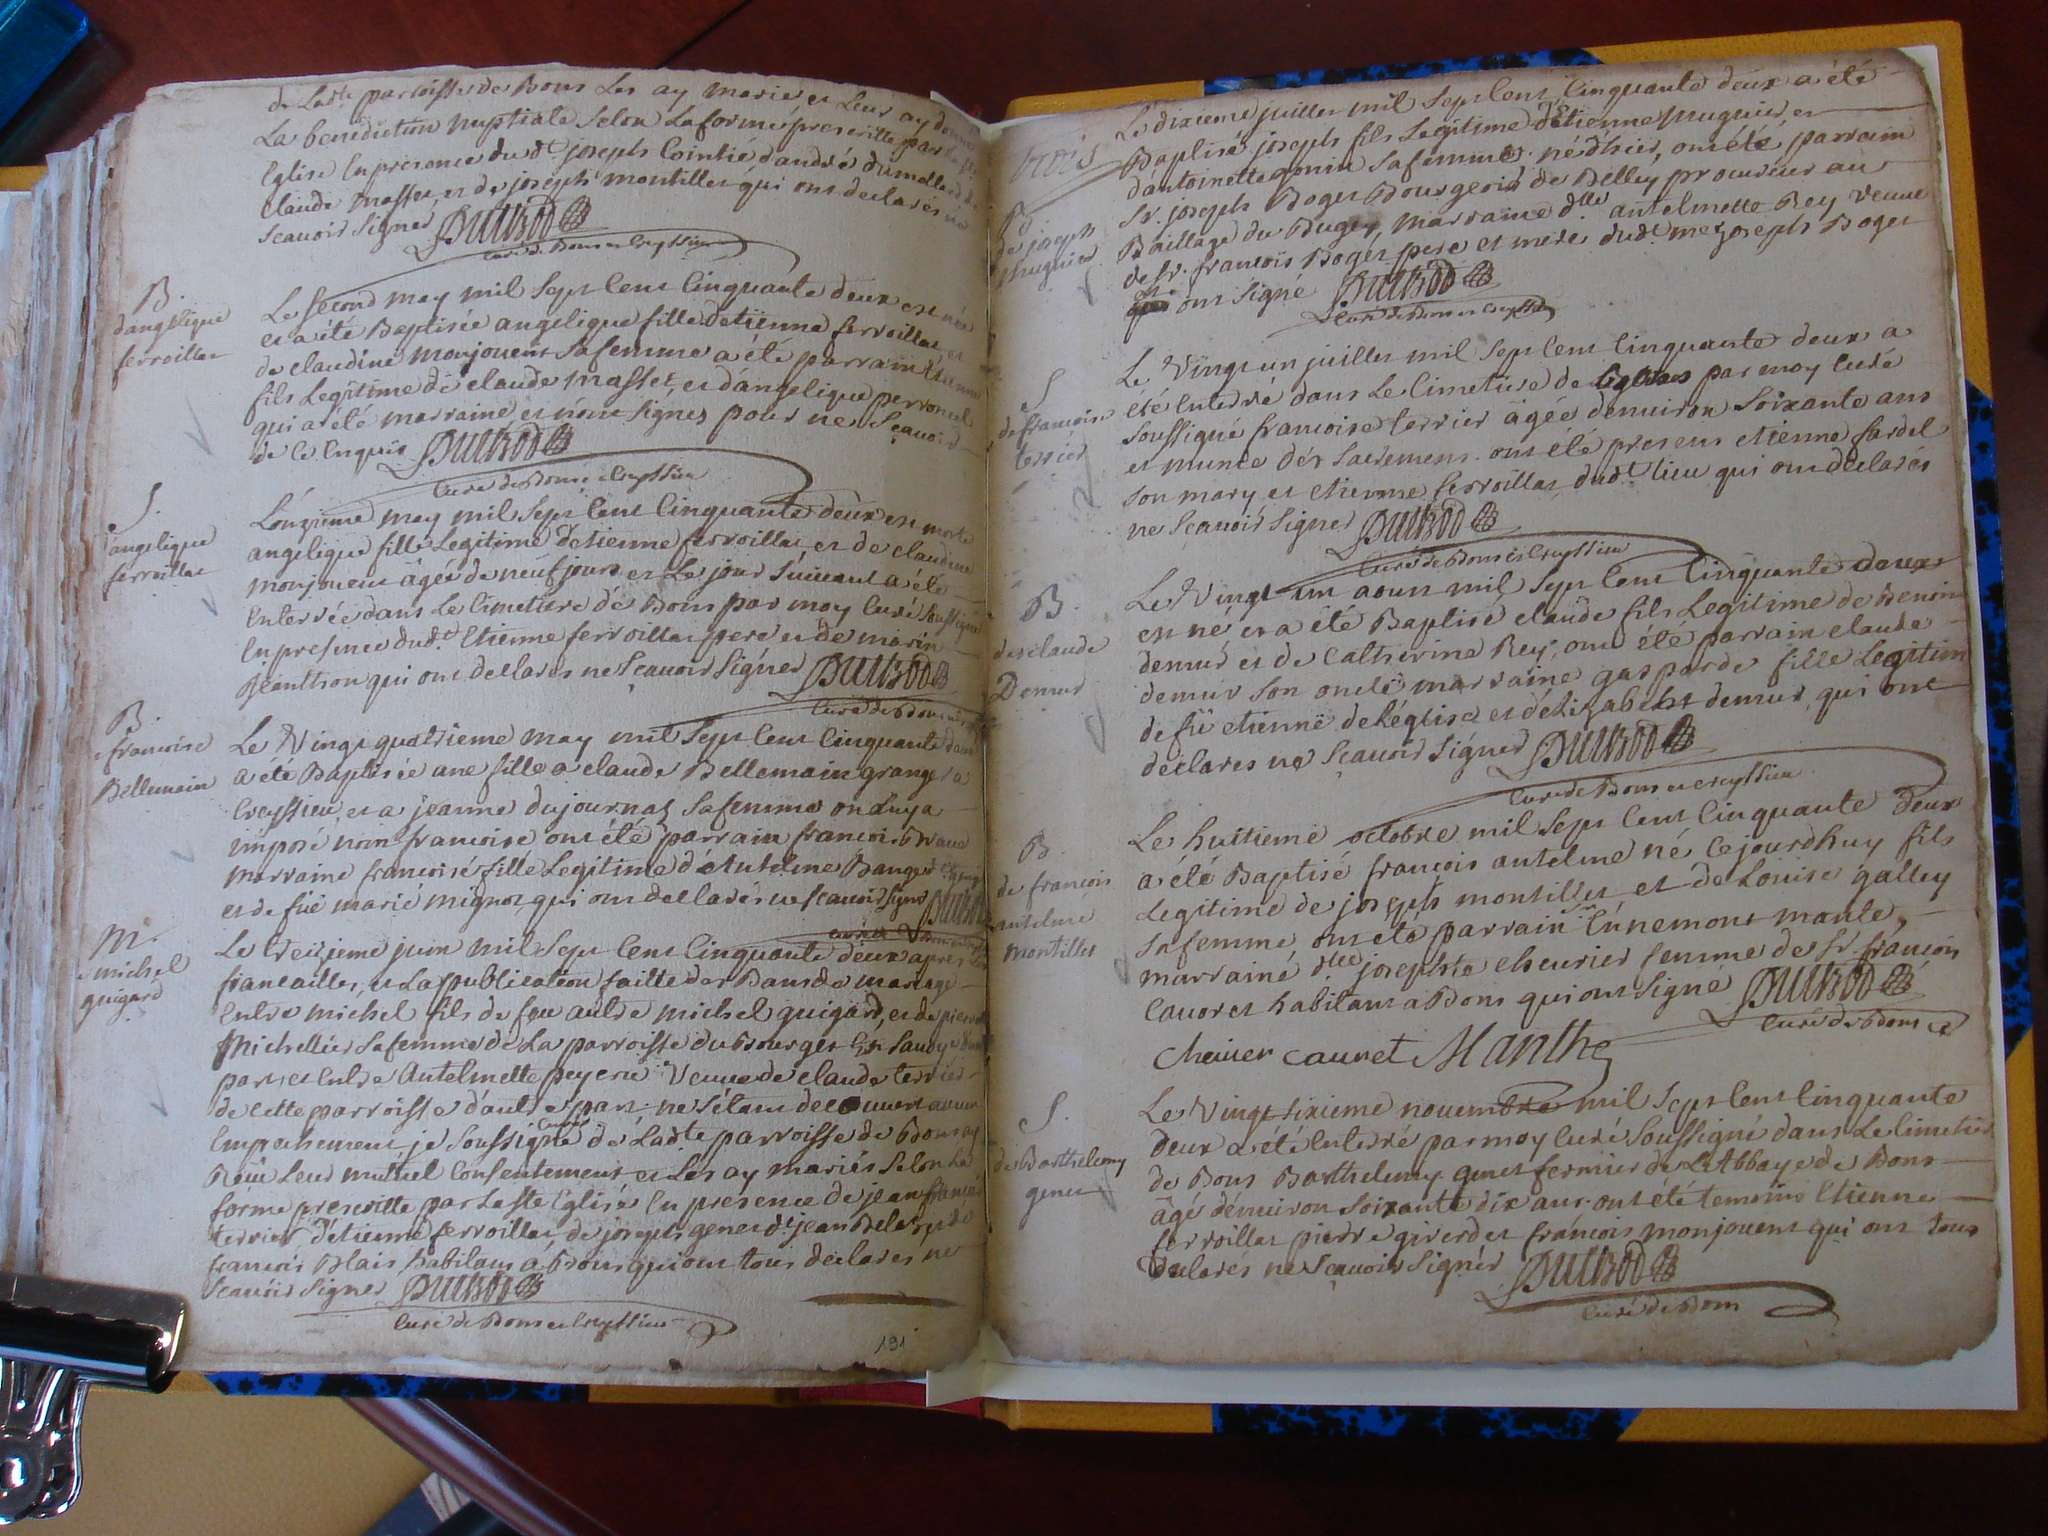 de Ladte parroisse de Bons Les ay marié et Leur ay donné
La benediction nuptiale selon La forme prescritte par
Eglise En presence dudt. joseph Cointié d'andré dumollard de
claude masset, et de joseph montillet qui ont declarés ne
scauoir signer DUUBOD
curé de Bons et Creyssieu
B.
d'angelique
ferroillat
Le second may mil sept Cent Cinquante deux est née
et a été Baptisée angelique fille d'etienne ferroillat, et
de claudine monjouent sa femme a été parrain
fils Legitime de claude masset, et d'angelique perronet
qui a été marraine et n'ont signés pour ne Sçauoir
de Ce Enquis DUUBOD
Curé de Bons et Creyssieu
S.
angelique
ferroillat
L'onzieme may mil sept Cent Cinquante deux est morte
angelique fille Legitime d'etienne ferroillat, et de claudine
monjouent âgée de neuf jours et Le jour suiuant a été
Enterrée dans Le Cimetiere de Bons par moy Curé soussigné
En presence dudt. Etienne ferroillat pere et de marin
Jeantbon qui ont declarés ne Scauoir Signer DUUBOD
Curé de Bons
B.
francoise
Bellemain
Le Vingt quatrieme may mil sept Cent Cinquante deux
a été Baptisée une fille a claude Bellemain granger a
Creyssieu, et a jeanne dujournaz sa femme on Luy a
imposé nom francoise ont été parrain francois
marraine francoise fille Legitime d'Antelme Banget
et de füe marie mignot, qui ont declarés ne scauoir signer DUUBOD
M.
michel
guigard
Le treizieme juin mil sept Cent Cinquante deux apres Les
fiancailles, et La publication faitte des Bans de mariage
Entre michel fils de feu autre michel guigard, et de
Michellier sa femme de La parroisse du Bourget En Sauoye d'une
part, et Entre Antelmette peyeru Veuue de claude terrier
de Cette parroisse d'autre part, ne s'etant decouuert aucun
Empechement je soussigné Curé de Ladte parroisse de Bons ay
Reçu Leur mutuel Consentement et Les ay mariés selon La
forme prescritte par La ste Eglise En presence de jean francois
terrier d'etienne ferroillat, de joseph genet de jean
francois Blais habitans a Bons qui ont tous declarés ne
scauoir signer DUUBOD
Curé de Bons et Creyssieu
191
B
de joseph
huguier
Le dixieme juillet mil sept Cent Cinquante deux a été
Baptisé joseph fils Legitime d'Etienne huguier, et
d'antoinette gonin sa femme né d'hier, ont été parrain
Sr. joseph Boget Bourgeois de Belley procureur au
Bailliage du Bugey, marraine dlle. antelmette Rey Veuue
de Sr. francois Boget pere et mere dudt. me joseph Boget
qui ont signé DUUBOD
Curé de Bons et Creyssieu
S
de francoise
terrier
Le Vingt un juillet mil sept Cent Cinquante deux a
été Enterré dans Le Cimetiere de Eglises par moy Curé
soussigné francoise terrier âgée d'enuiron soixante ans
et munie des sacremens. ont été presens etienne fardel
son mary et etienne ferroillat dudt. lieu qui ont declarés
ne Scauoir signer DUUBOD
Curé de Bons et Creyssieu
B.
de claude
Demur
Le Vingt un aoust mil sept Cent Cinquante deux
est né et a été Baptisé claude fils Legitime de Benoit
demur et de Catherine Rey, ont été parrain claude
demur son oncle marraine gasparde fille Legitime
de fü etienne de l'eglise et d'elizabeht demur, qui ont
declarés ne Scauoir Signer DUUBOD
Curé de Bons et Creyssieu
B.
de francois
antelme
montillet
Le huitieme octobre mil sept Cent Cinquante deux
a été Baptisé françois antelme né Cejourdhuy fils
Legitime de joseph montillet et de Louise galley
sa femme, ont été parrain Ennemont mante,
marraine dlle josephte cheurier femme de sr. françois
Cauoret habitans a Bons qui ont signé DUUBOD
Curé de Bons
cheuier cauret Manthe
S.
de Barthelemy
genet
Le Vingt sixieme nouembre mil sept Cent Cinquante
deux a été Enterré par moy Curé soussigné dans Le Cimetiere
de Bons Barthelemy genet fermier de L'Abbaye de Bons
âgé d'enuiron soixante dix ans. ont été temoins Etienne
ferroillat pierre girerd et françois monjouent qui ont tous
declarés ne Scauoir Signer DUUBOD
Curé de Bons